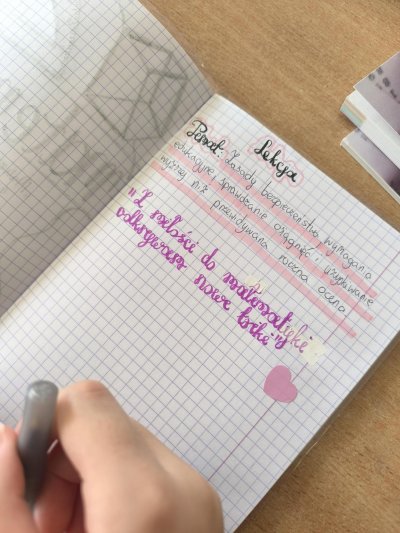 Lekcja
Temat: Zasady bezpieczeństwa, wymagania
edukacyjne, sprawdzanie osiągnięć i uzyskiwanie
wyższej niż przewidywana roczna ocena
"Z miłości do matematyki
odkrywam nowe